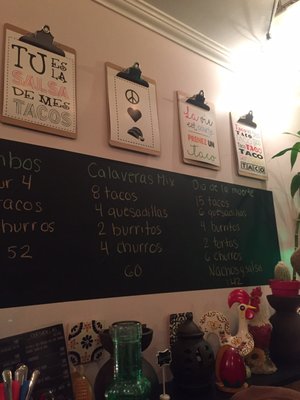 TU ES LA
SALSA
DE MES
TACOS
la vie
est courte
PRENEZ
UN
taco
mbos
ur 4
acos
urros
52
Calaveras Mix
8 tacos
4 quesadillas
2 burritos
4 churros
60
Dia de la muerte
15 tacos
6 quesadillas
4 burritos
2 tortas
6 churros
Nachos y salsa